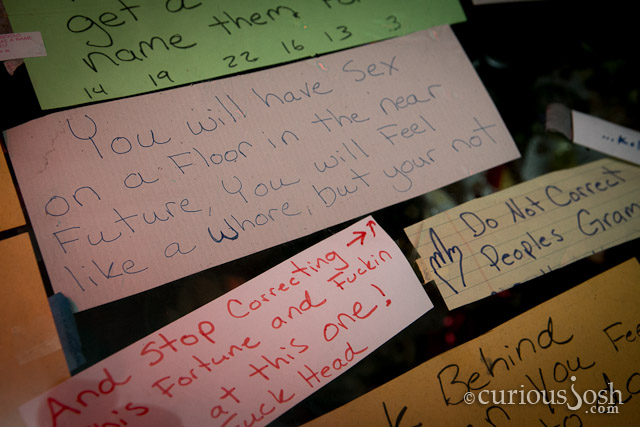 get a
name them
14 19 22 16 13 3
You will have Sex
on a Floor in the near
Future, You will Feel
like a whore, but your not
Do Not Correct
Peoples Gram
And Stop Correcting
this Fortune and Fuckin
at this one!
Fuck Head
Behind
You Fe
©curiousJosh
.com